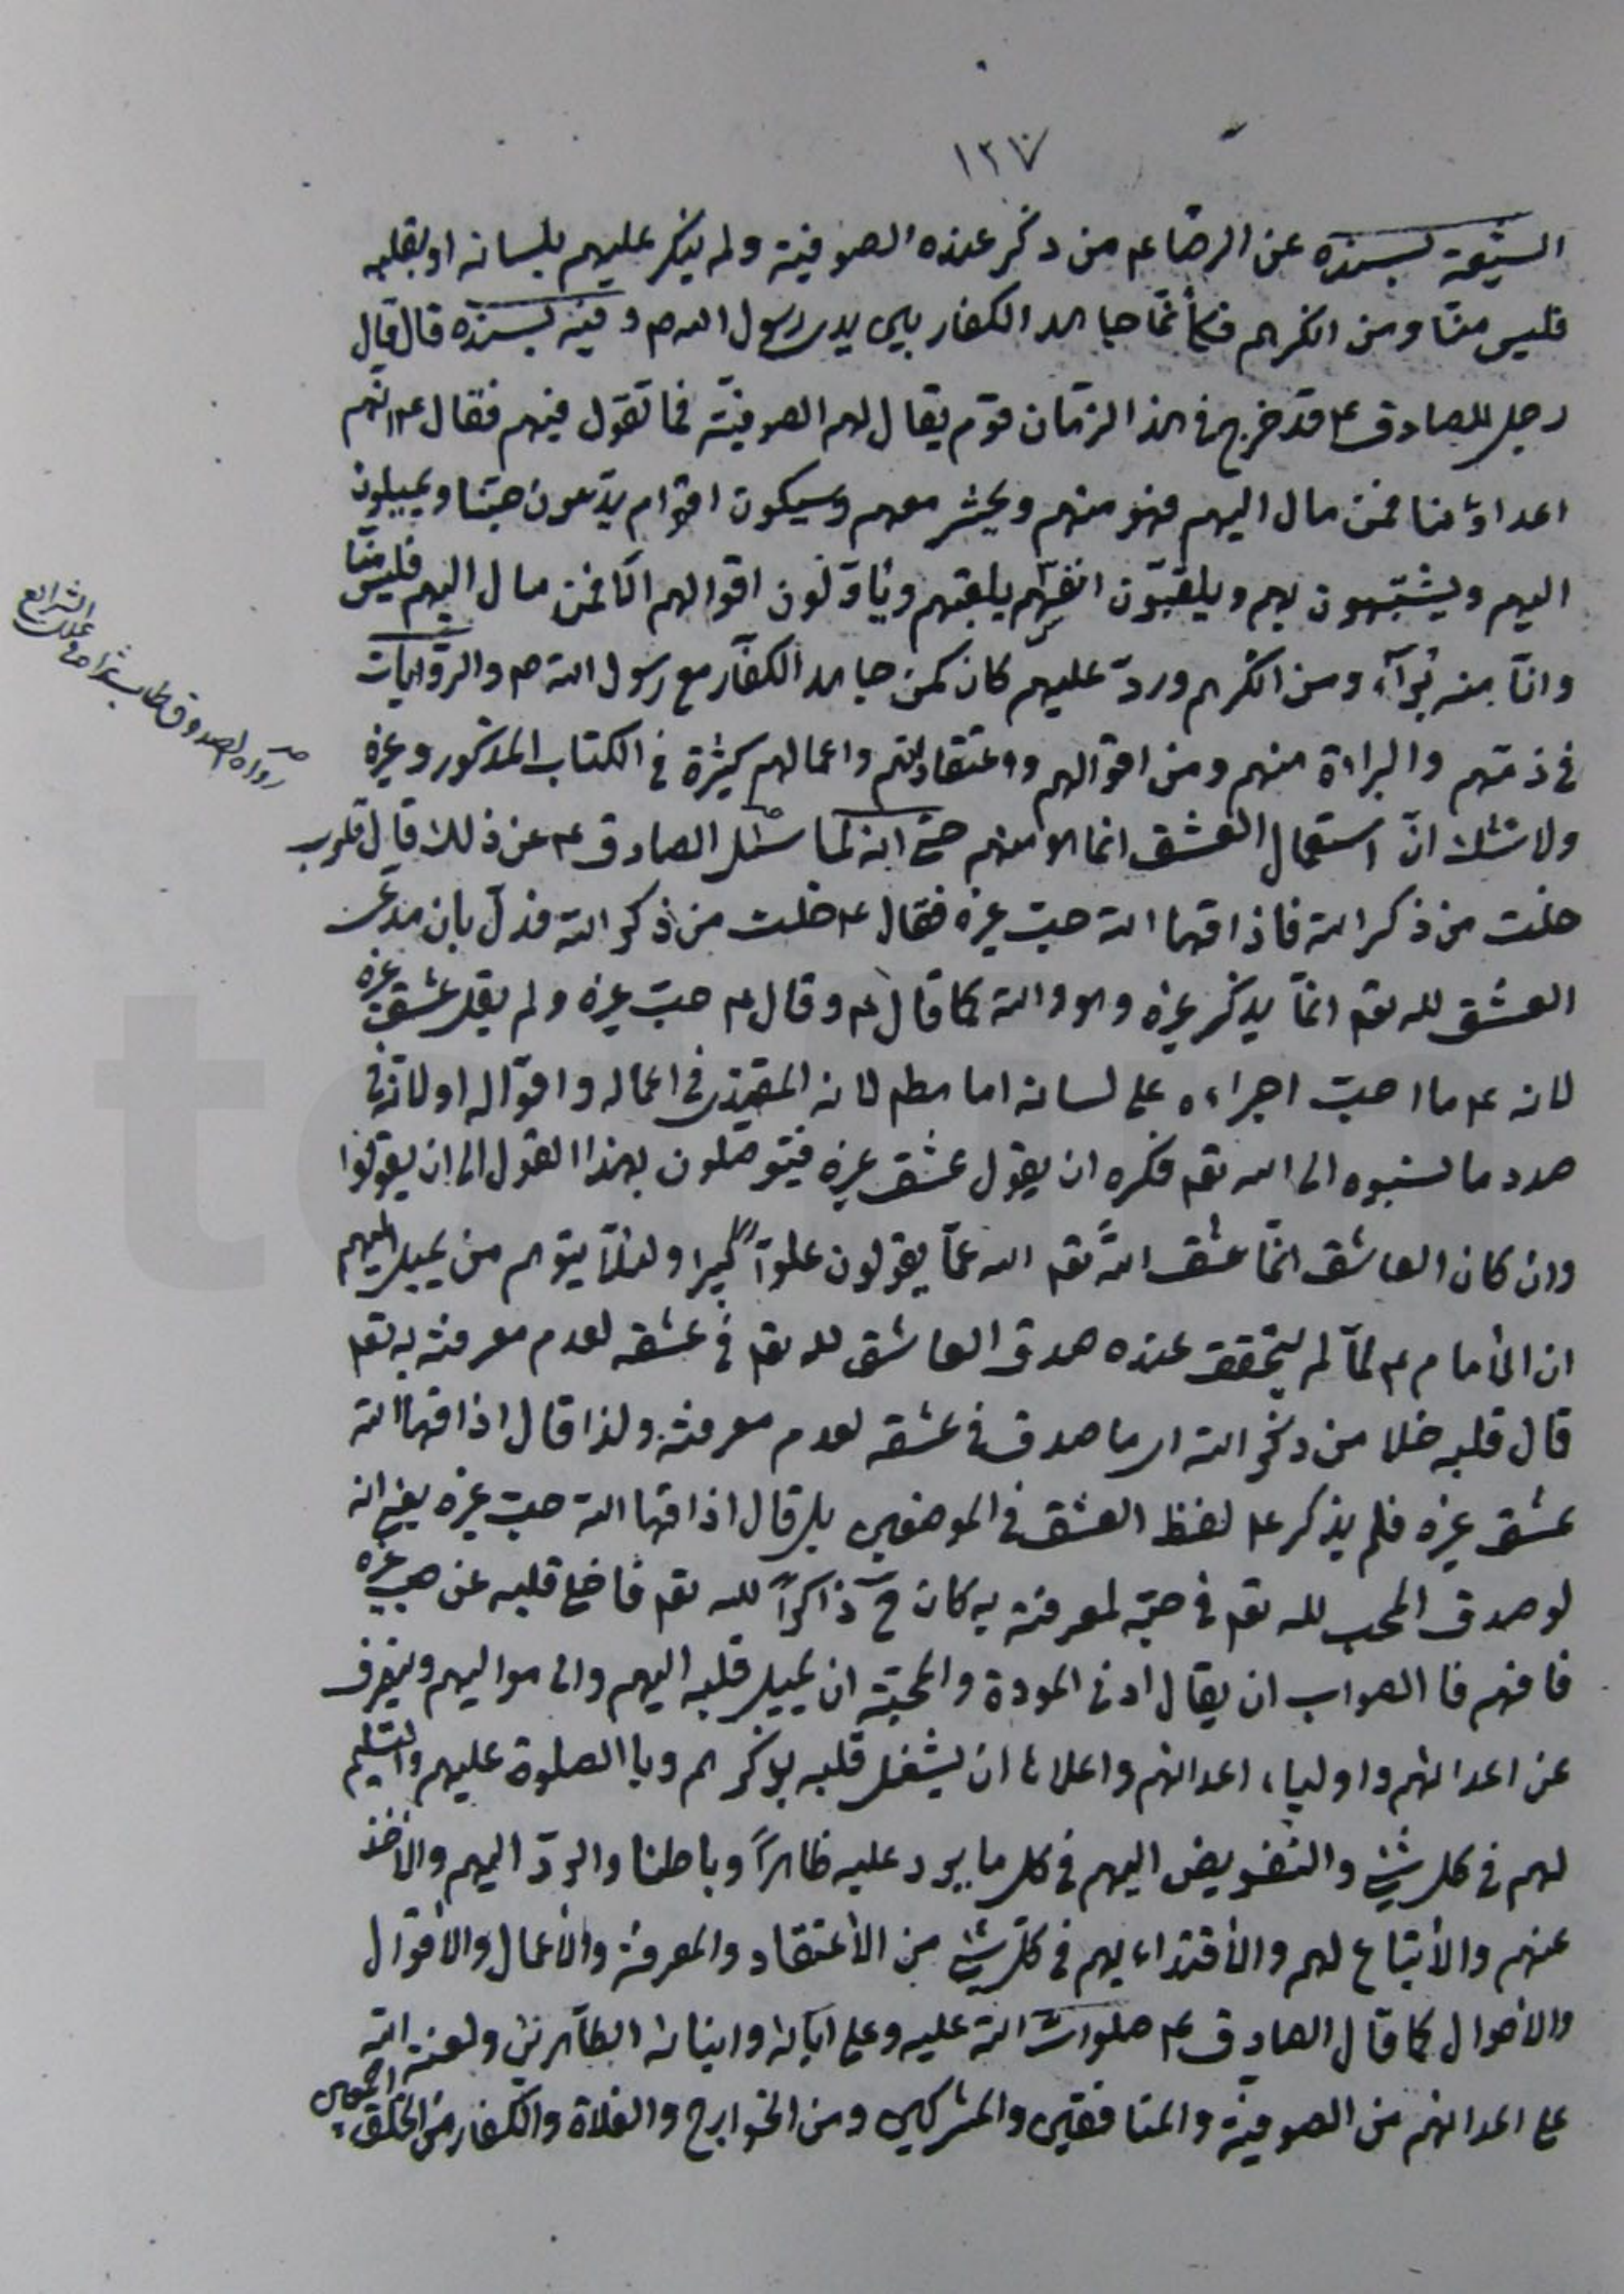 ١٢٧
الشيعة بسنده عن الرضا عم من ذكر عنده الصوفية ولم ينكر عليهم بلسانه او بقلبه
فليس منا ومن انكرهم فكأنما جاهد الكفار بين يدي رسول الله ص وفيه بسنده قال قال
رجل للصادق ع قد خرج في هذا الزمان قوم يقال لهم الصوفية فما تقول فيهم فقال ع انهم
اعداؤنا فمن مال اليهم فهو منهم ويحشر معهم وسيكون اقوام يدعون حبنا ويميلون
اليهم ويشتبهون بهم ويلقبون انفسهم بلقبهم ويأولون اقوالهم الا فمن مال اليهم فليس منا
وانا منه برآء ومن انكرهم ورد عليهم كان كمن جاهد الكفار مع رسول الله ص والروايات
في ذمتهم والبراءة منهم ومن اقوالهم واعتقاداتهم واعمالهم كثيرة في الكتاب المذكور وغيره
ولا شك ان استعمال العشق انما هو منهم حتى انه لما سئل الصادق ع عن ذلك قال قلوب
خلت من ذكر الله فاذاقها الله حب غيره فقال ع خلت من ذكر الله فدل بان مدعى
العشق لله تعم انما يذكر غيره وهو والله كما قال ع وقال ع حب غيره ولم يقل عشق غيره
لانه ع ما احب اجراءه على لسانه اما مطم لانه المقتدى في اعماله واقواله او لانه في
صدد ما نسبوه الى الله تعم فكره ان يقول عشق غيره فيتوصلون بهذا القول الى ان يقولوا
وان كان العاشق انما عشق الله تعم الله عما يقولون علوا كبيرا ولئلا يتوهم من يميل اليهم
ان الأمام ع لما لم يتحقق عنده صدق العاشق لله تعم في عشقه لعدم معرفته به تعم
قال قلبه خلا من ذكر الله اى ما صدق في عشقه لعدم معرفته ولذا قال اذاقها الله
عشق غيره فلم يذكر ع لفظ العشق في الموضعين بل قال اذاقها الله حب غيره يعني انه
لو صدق المحب لله تعم في حبه لمعرفته به كان ح ذاكرا لله تعم فاضى قلبه عن حب غيره
فافهم فا الصواب ان يقال ادنى المودة والمحبة ان يميل قلبه اليهم والى مواليهم وينصرف
عن اعدائهم واولياء اعدائهم واعلاها ان يشغل قلبه بذكرهم وبا الصلوة عليهم والتسليم
لهم في كل شيء والتفويض اليهم في كل ما يرد عليه ظاهرا وباطنا والرد اليهم والأخذ
عنهم والأتباع لهم والأقتداء بهم في كل شيء من الأعتقاد والمعرفة والأعمال والأقوال
والاحوال كما قال الصادق ع صلوات الله عليه وعلى آبائه وابنائه الطاهرين ولعنة الله
على اعدائهم من الصوفية والمنافقين والمشركين ومن الخوارج والغلاة والكفار من الخلق اجمعين
رواه الصدوق طاب ثراه في علل الشرايع